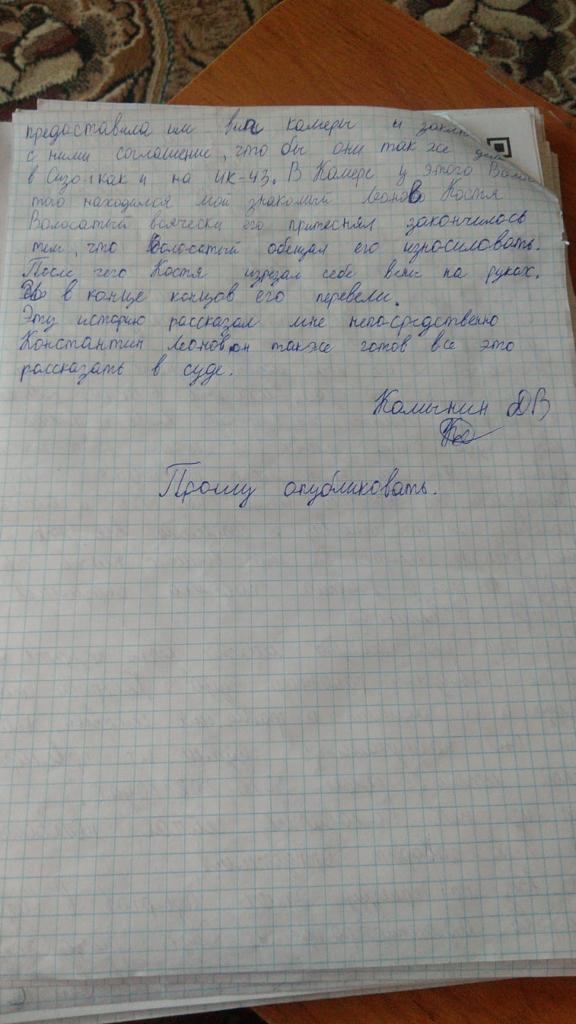 предоставила им вип камеры и
с ними соглашение, что бы они так же
в Сизо как и на ИК-43. В Камере у этого
того находился мой знакомый Леонов Костя
Волосатый всячески его притеснял закончилось
тем, что Волосатый обещал его изнасиловать.
После чего Костя изрезал себе вены на руках.
в конце концов его перевели.
Эту историю рассказал мне непосредственно
Константин Леонов он также готов все это
рассказать в суде.
Камынин ДВ
Прошу опубликовать.